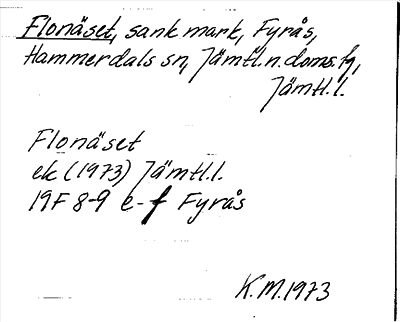 Flonäset, sank mark, Fyrås,
Hammerdals sn, Jämtl.n.doms.fg,
Jämtl.l.
Flonäset
ek (1973) Jämtl.l.
19F 8-9 e-f Fyrås
K.M.1973